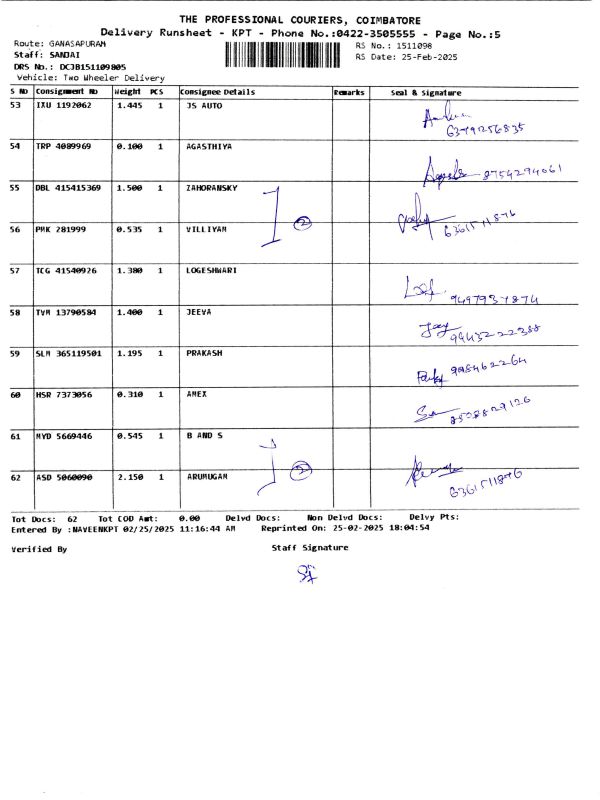 THE PROFESSIONAL COURIERS, COIMBATORE
Delivery Runsheet - KPT - Phone No.:0422-3505555 - Page No.:5
Route: GANASAPURAM
Staff: SANJAI
DRS No.: DCJB151109805
Vehicle: Two Wheeler Delivery
RS No.: 1511098
RS Date: 25-Feb-2025
S No Consignment No Weight PCS Consignee Details Remarks Seal & Signature
53 IXU 1192062 1.445 1 JS AUTO
6379256835
54 TRP 4089969 0.100 1 AGASTHIYA
8754294061
55 DBL 415415369 1.500 1 ZAHORANSKY
2
6361511876
56 PMK 281999 0.535 1 VILLIYAM
57 TCG 41540926 1.380 1 LOGESHWARI
9497937874
58 TVM 13790584 1.400 1 JEEVA
9943222388
59 SLM 365119501 1.195 1 PRAKASH
998462264
60 HSR 7373056 0.310 1 AMEX
8508829126
61 MYD 5669446 0.545 1 B AND S
2
62 ASD 5060090 2.150 1 ARUMUGAM
6361511876
Tot Docs: 62 Tot COD Amt: 0.00 Delvd Docs: Non Delvd Docs: Delvy Pts:
Entered By :NAVEENKPT 02/25/2025 11:16:44 AM Reprinted On: 25-02-2025 18:04:54
Verified By Staff Signature